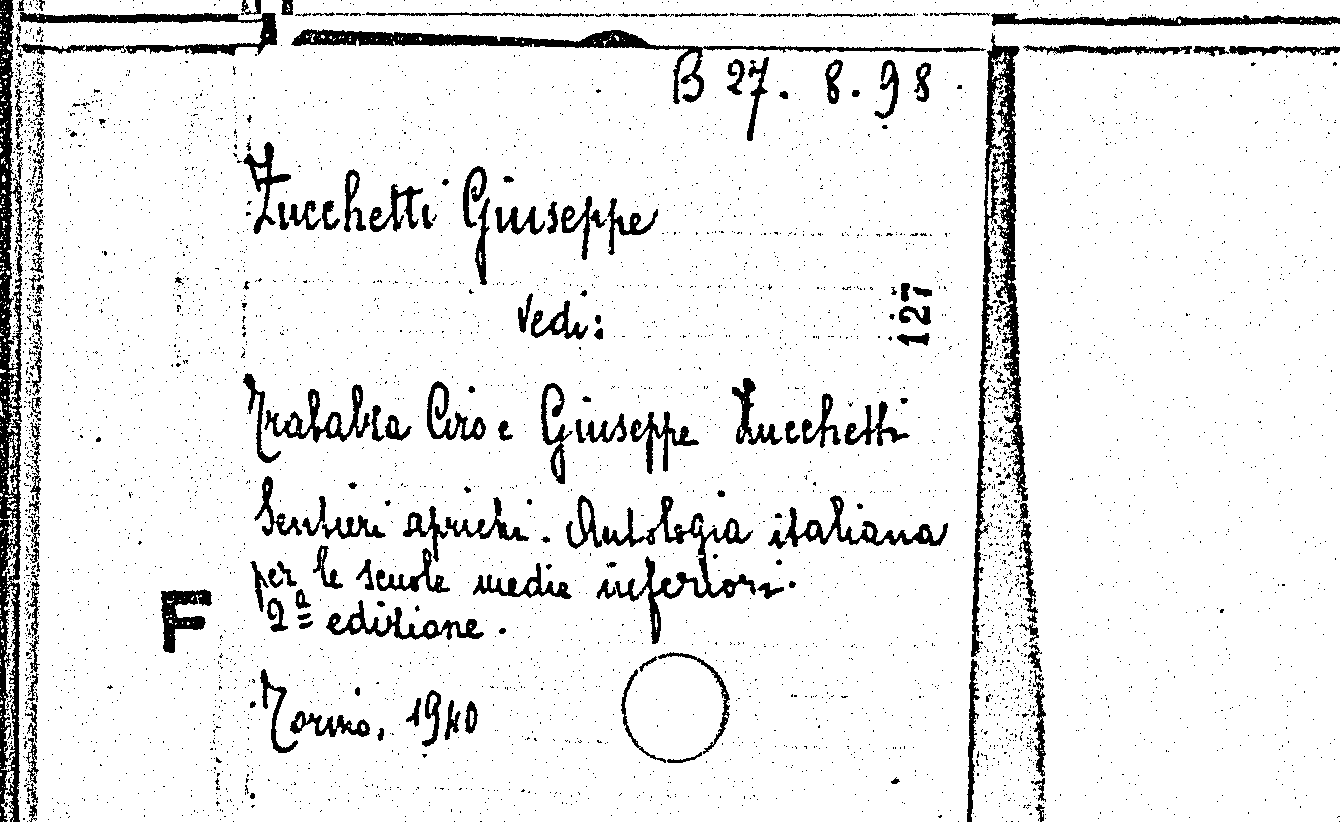 B 27. 8. 98.
Zucchetti Giuseppe
Vedi:
127
Trabalza Ciro e Giuseppe Zucchetti
Sentieri aprichi. Antologia italiana
per le scuole medie inferiori.
2ª edizione.
F
Torino, 1940